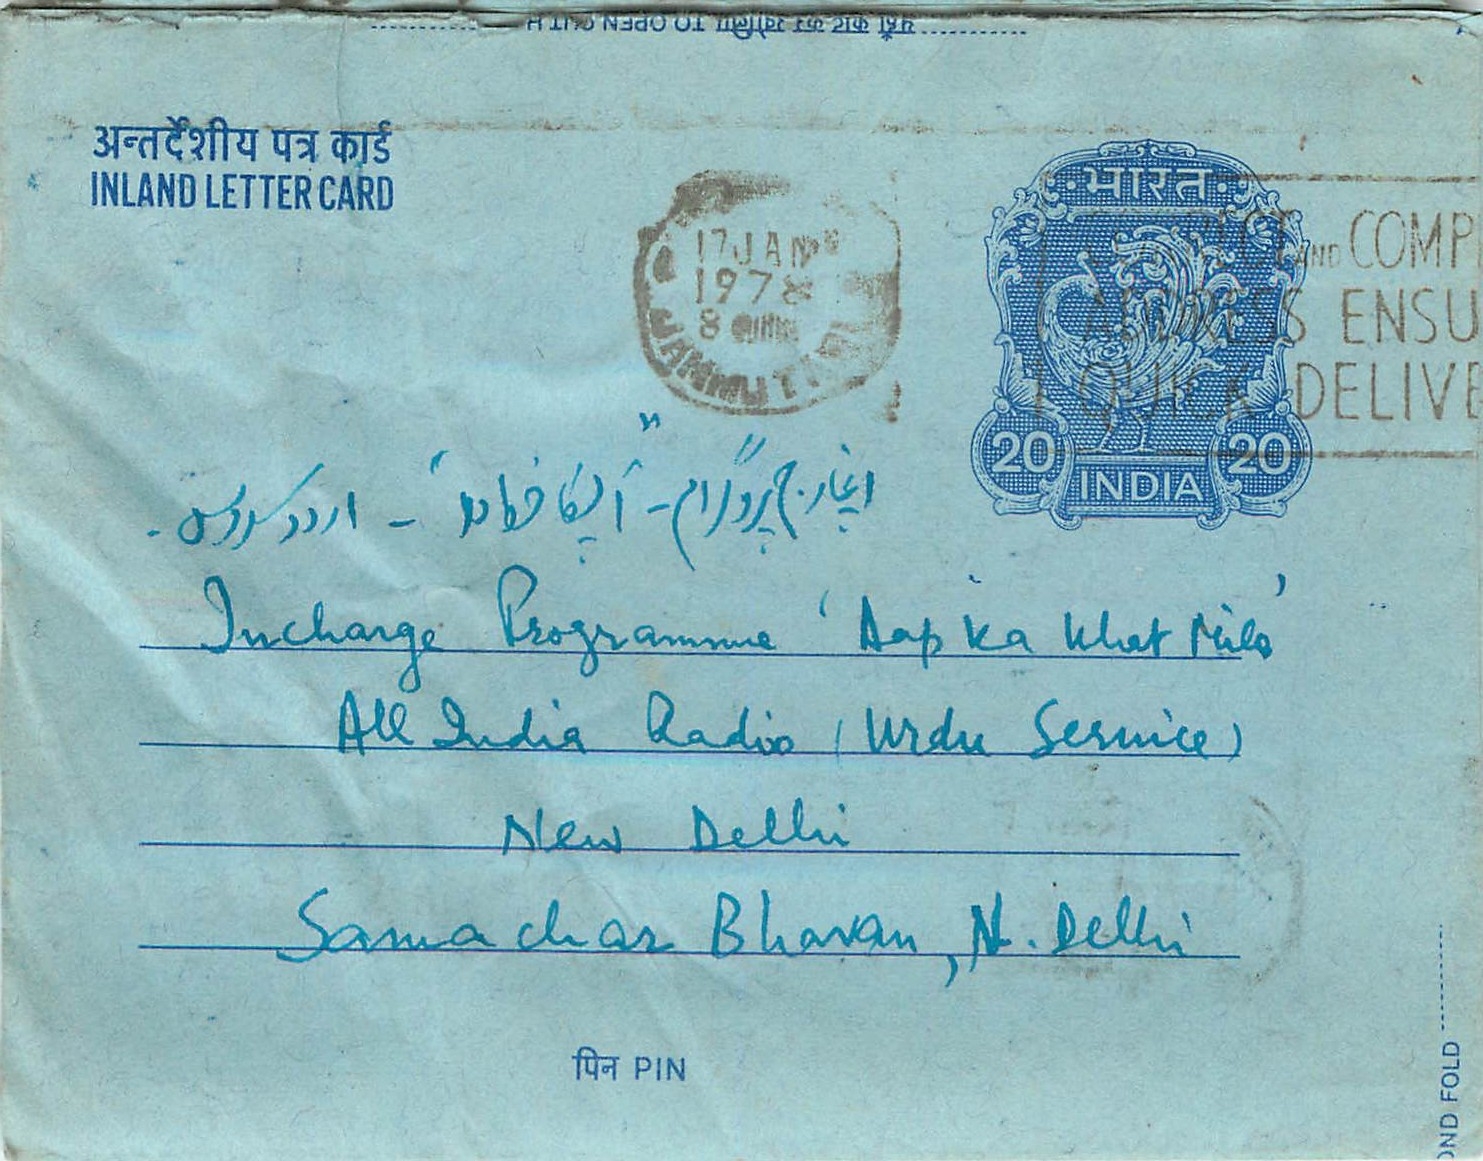 यहाँ काट कर खोलिए TO OPEN CUT H
अन्तर्देशीय पत्र कार्ड
INLAND LETTER CARD
भारत
17 JAN
1978
8
JAMMU T
AND COMP
ADDRESS ENSU
QUICK DELIVE
20 INDIA 20
انچارج پروگرام - "آپ کا خط ملا" - اردو سروس -
Incharge Programme 'Aap Ka Khat Mila'
All India Radio (Urdu Service)
New Delhi
Samachar Bhavan, N. Delhi
पिन PIN
OND FOLD